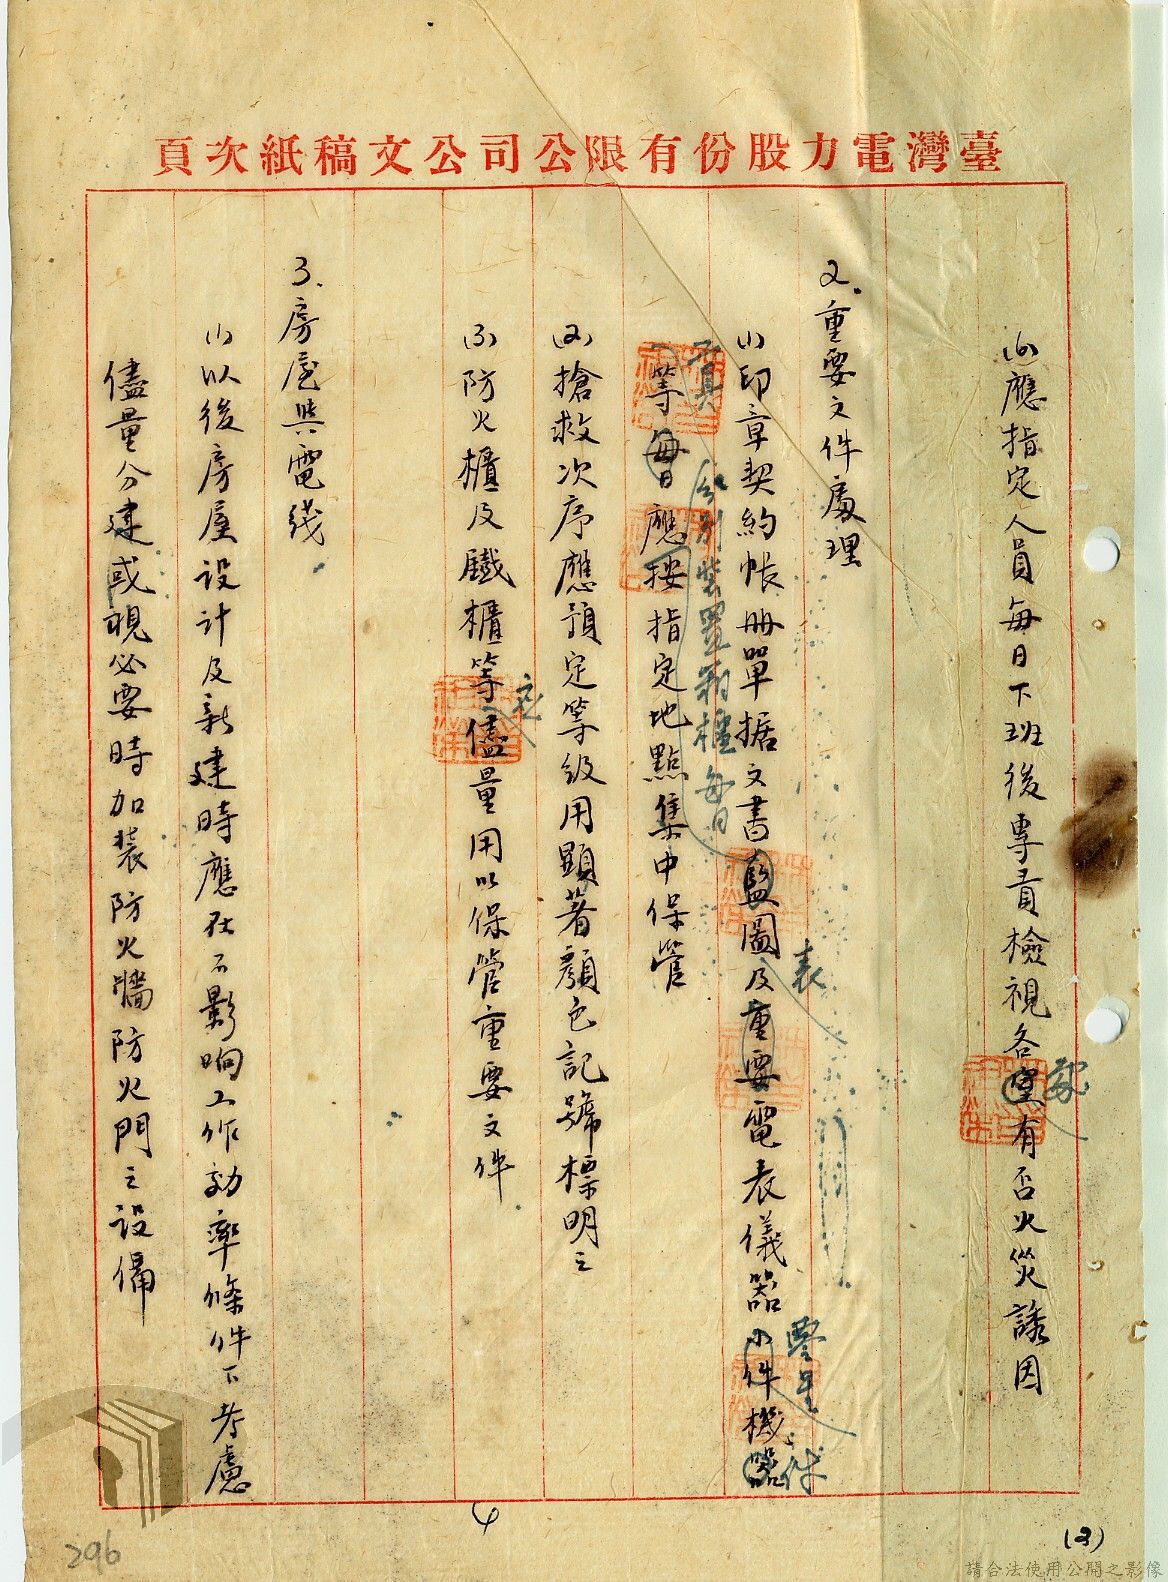 臺灣電力股份有限公司公文稿紙次頁
應指定人員每日下班後專責檢視各室有否火災誘因
處
2.重要文件處理
(1)印章契約帳册單据文書藍圖及重要電表儀器小件機器
表
零星
件
等每日應按指定地點集中保管
貴
分別裝置箱櫃每日
(2)搶救次序應預定等級用顯著顏色記號標明之
(3)防火櫃及鐵櫃等儘量用以保管重要文件
應
3.房屋與電线
(1)以後房屋設計及新建時應在不影响工作効率條件下考慮
儘量分建或視必要時加裝防火牆防火門之設俻
4
(2)
296
請合法使用公開之影像